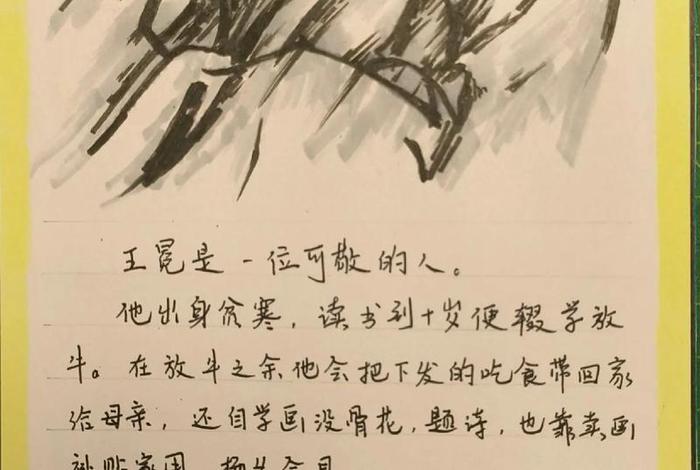 王冕是一位可敬的人。
他出身贫寒，读书到十岁便辍学放
牛。在放牛之余他会把下发的吃食带回家
给母亲，还自学画没骨花，题诗，也靠卖画
补贴家用，